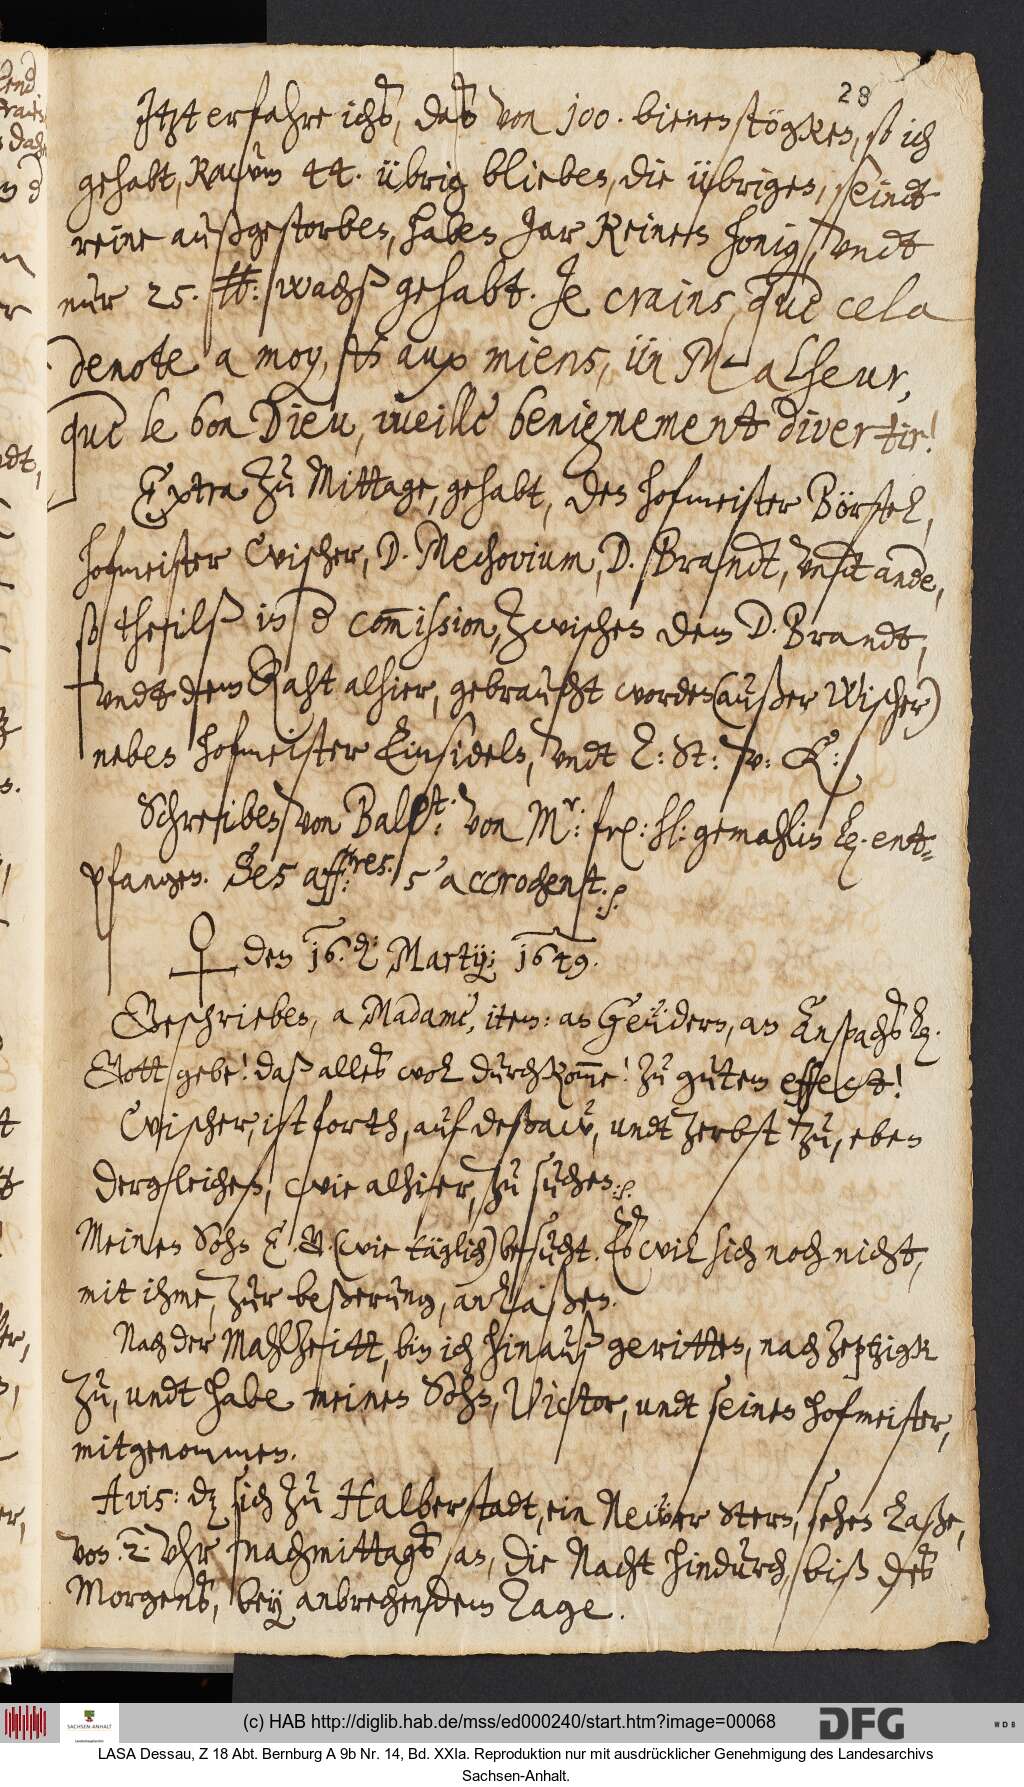 28
Itzt erfahre ichs, das von 100. bienenstögken, so ich
gehabt, kaum 44. übrig blieben, die übrigen, seindt
reine außgestorben, haben gar keinen honig, undt
nur 25. ℔: wachß gehabt. Je crains, que cela
denote a moy, & aux miens, ün Malheur,
que le bon Dieu, vueille benignement divertir!
Extra zu Mittage, gehabt, den hofmeister Börstel,
hofmeister Wischer, D. Mechovium, D. Brandt, undt ande,
so theilß in d commission, zwischen dem D. Brandt,
undt dem Raht alhier, gebraucht worden (außer Wischer)
neben hofmeister Einsideln, undt
Schreiben von von Mr: gemahlin ent¬
pfangen. Ses affres: s'accrochent.
♀ den 16. Martij: 1649.
Geschrieben, a Madame, item: an Geudern, an
Gott gebe! daß alles wol durchkomme! zu gutem effect!
Wischer, ist forth, auf deßaw, undt Zerbst zu, eben
dergleichen, wie alhier, zu suchen.
Meinen Sohn E. A. (wie täglich) besucht. Es wil sich noch nicht,
mit ihme, zur beßerung, anlaßen.
Nach der Mahlzeitt, bin ich hinauß geritten, nach Zeptzigk
zu, undt habe meinen Sohn, Victor, undt seinen hofmeister,
mitgenommen.
Avis: dz sich zu Halberstadt, ein Neuer Stern, sehen laße,
von 2. Uhr nachmittags an, die Nacht hindurch, biß des
Morgens, bey anbrechendem Tage.
(c) HAB http://diglib.hab.de/mss/ed000240/start.htm?image=00068
SACHSEN-ANHALT
DFG
WDB
LASA Dessau, Z 18 Abt. Bernburg A 9b Nr. 14, Bd. XXIa. Reproduktion nur mit ausdrücklicher Genehmigung des Landesarchivs
Sachsen-Anhalt.